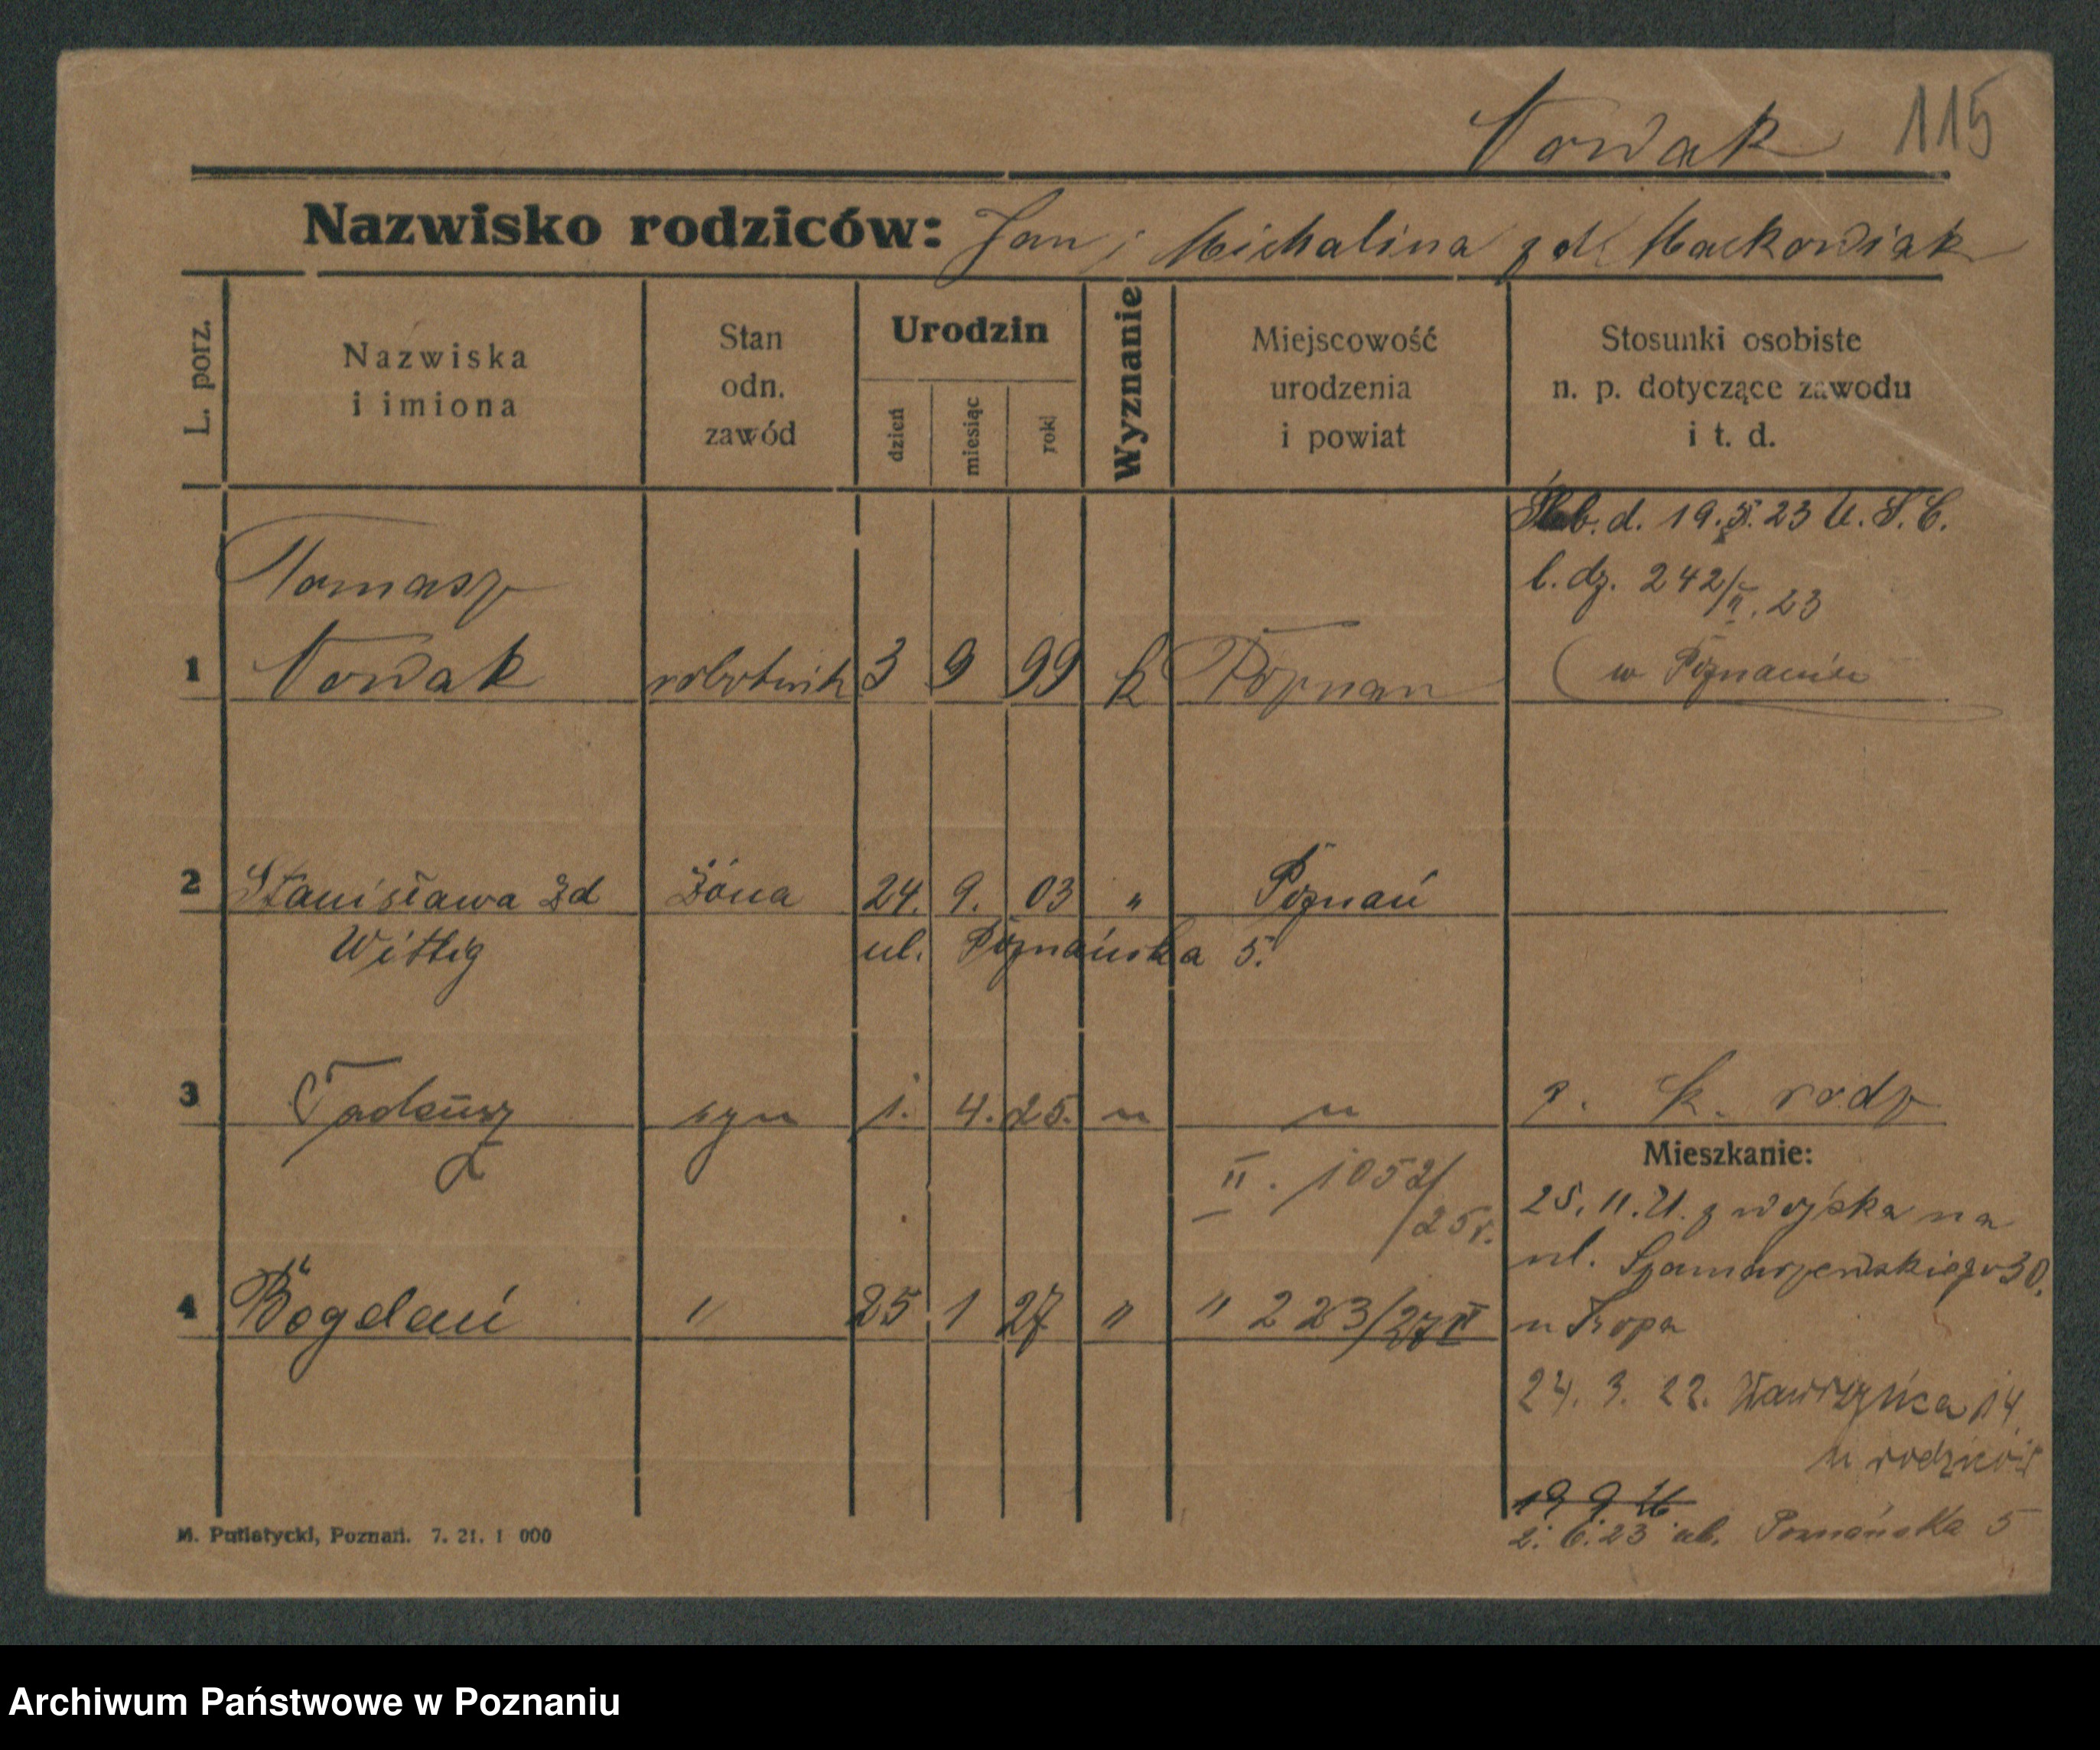 Nowak 115
Nazwisko rodziców: Jan i Michalina z d. Mackowiak
L. porz.
Nazwiska i imiona
Stan odn. zawód
Urodzin
dzień miesiąc rok
Wyznanie
Miejscowość urodzenia i powiat
Stosunki osobiste n. p. dotyczące zawodu i t. d.
d. 19.5.23 U.S.C.
l. dz. 242/II.23
Tomasz
1 Nowak robotnik 3 9 99 k Poznan (w Poznaniu
2 Stanisława Zd Żóna 24. 9. 03 " Poznań
Wittig ul. Poznańska 5.
3 Tadeusz syn 1. 4. 25. " " p. k. rodz
Mieszkanie:
II. 1052/25r.
25. 11. 21. z wojska na
ul. Szamarzewskiego 30.
4 Bogdan " 25 1 27 " " 223/27 II u
24. 3. 22. Wawrzyńca 14
u rodziców
19 9 26
2. 6. 23 ul. Poznańska 5
M. Putiatycki, Poznań. 7. 21. 1 000
Archiwum Państwowe w Poznaniu